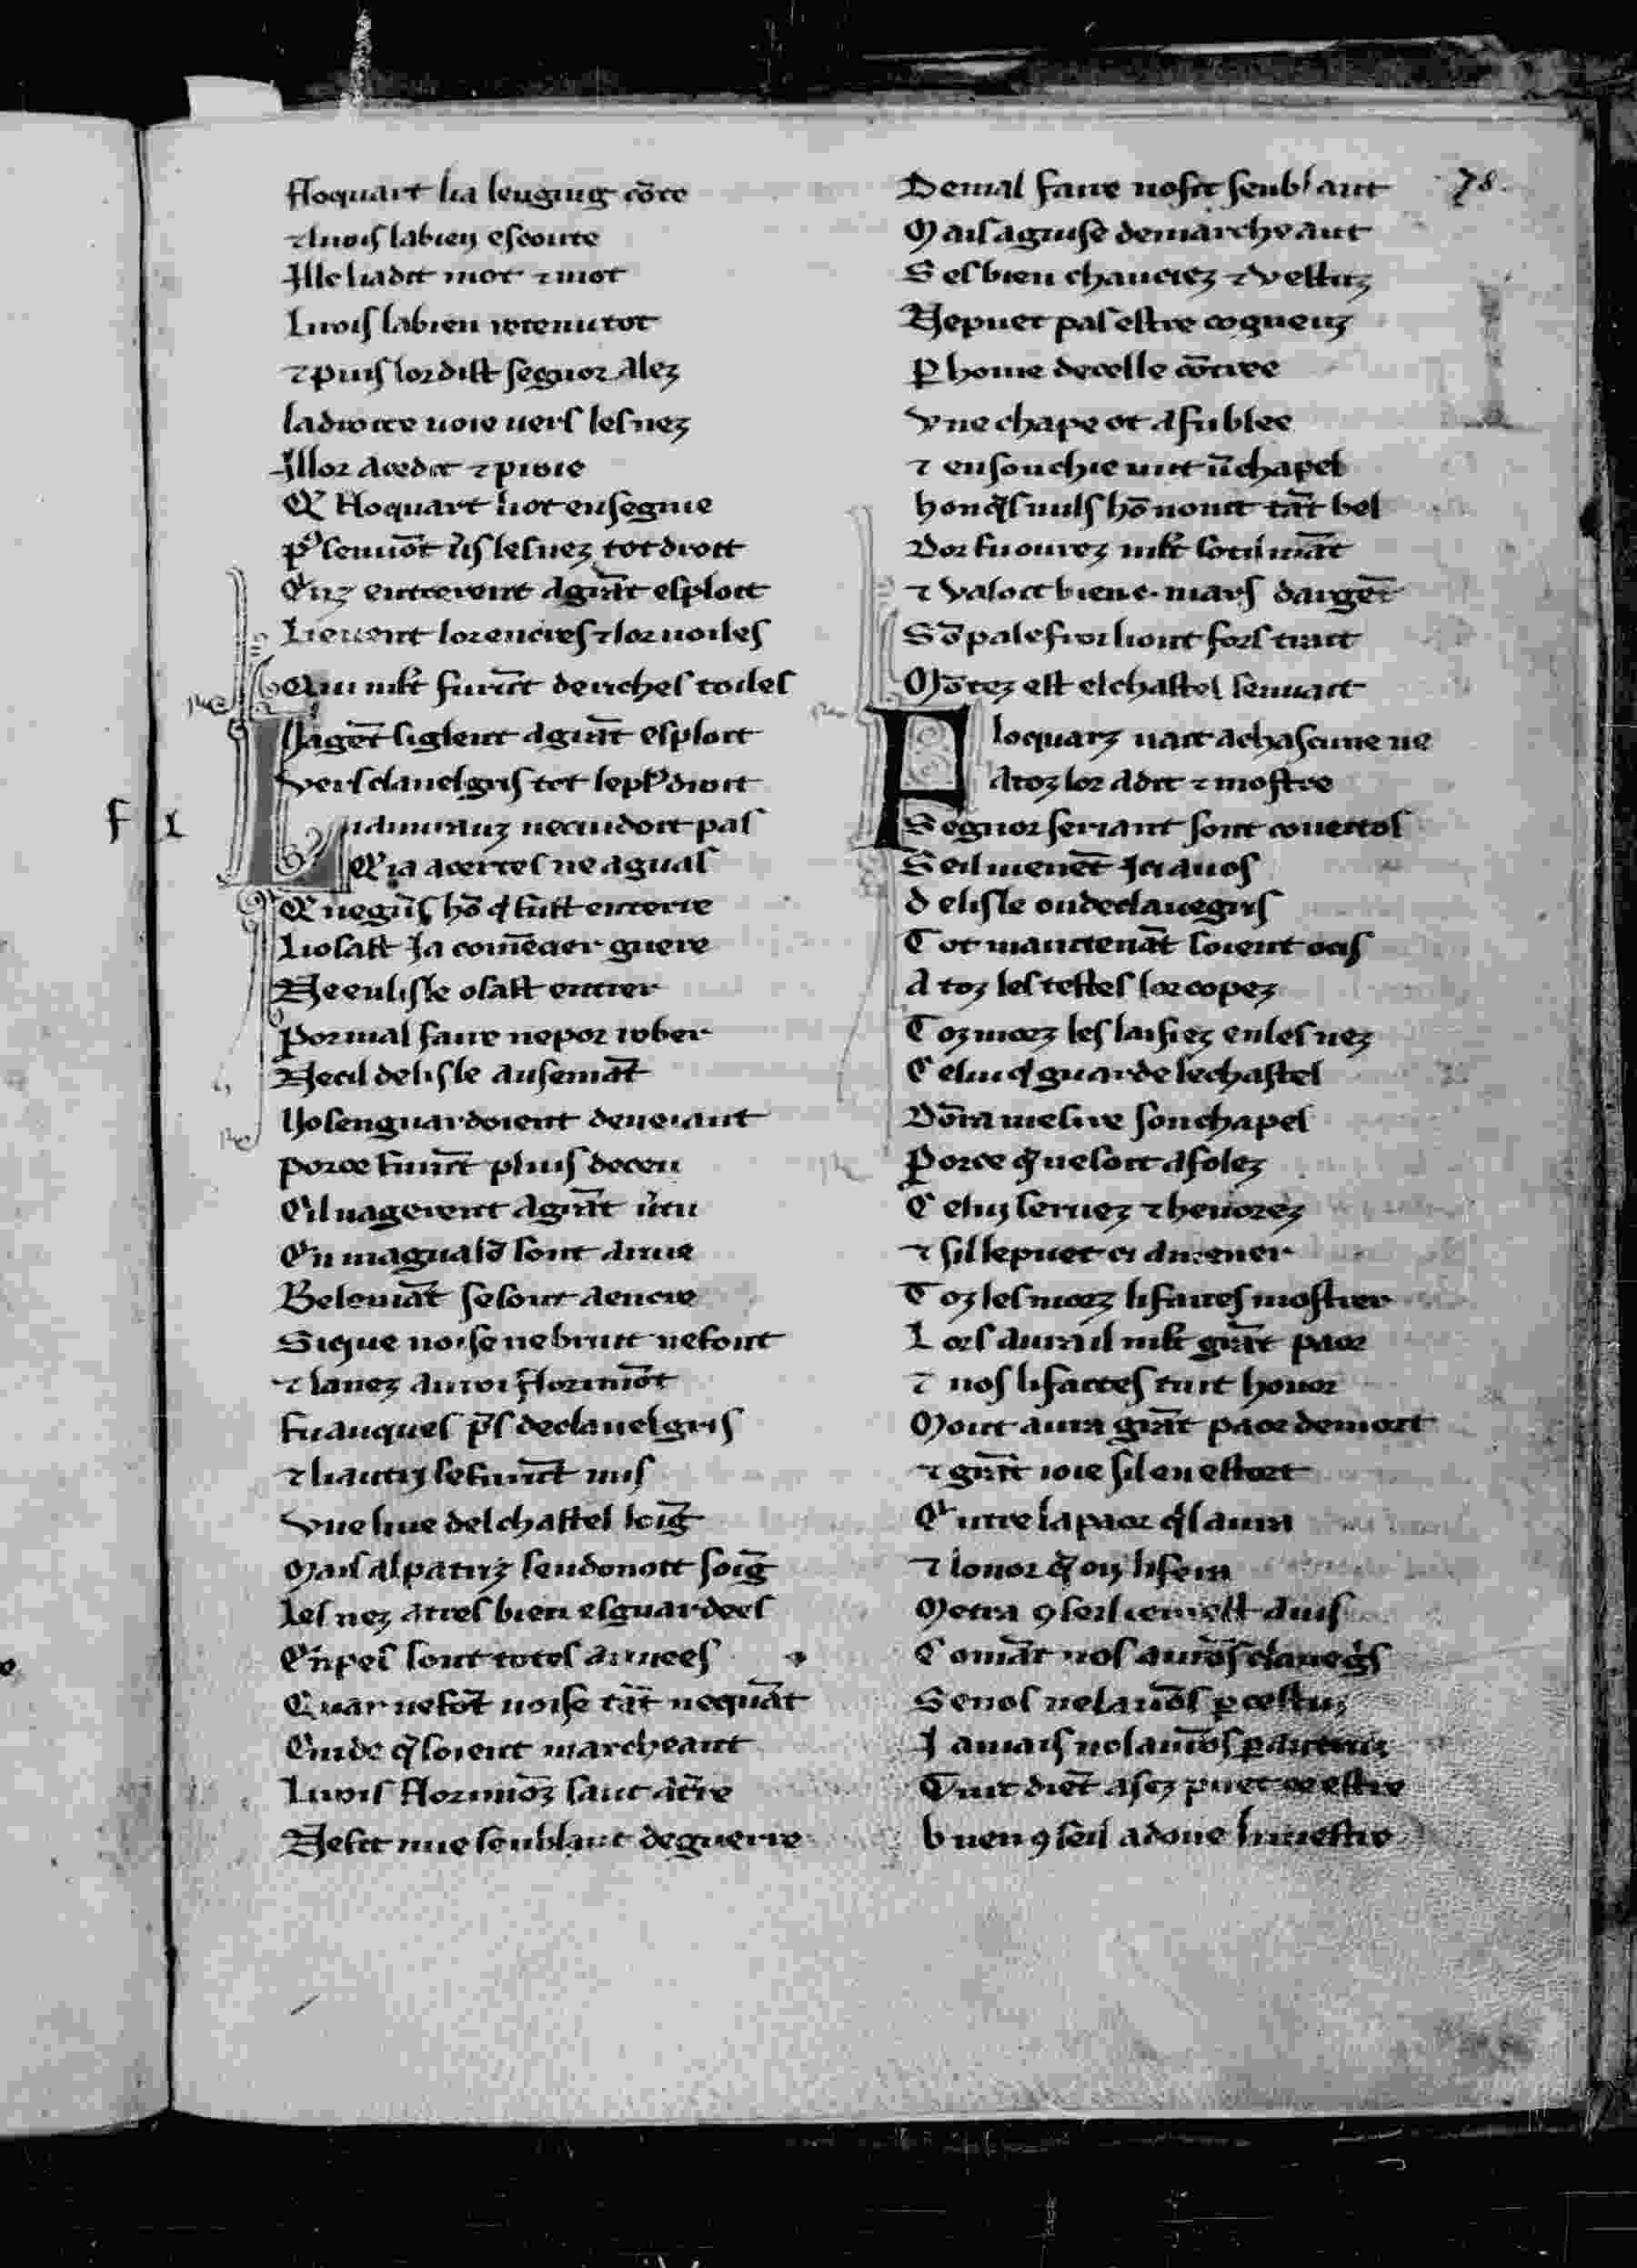 Floquart lia lenging cōte
⁊ li rois labien escoute
Ille liadit mot ⁊ mot
Li rois labien retenu tot
⁊ puis lor dist segnor alez
la droite uoie uers les nez
Il lor acedit ⁊ proie
Q Floquart liot ensegnie
senuōt ũs les nez tot droit
Enz entrerent agrāt esploit
Lieuent lor encres ⁊ lor uoiles
Qui mlt furēt de riches toiles
Nagēt siglent agrāt esploit
vers clauelgris tot le pl9 droit
ne cuidoit pas
Q ia a certes ne a guas
Q negūs hō q̄ fust en terre
Li osast ia comēcier guere
Ne en lisle osast entrer
Por mal faire ne por rober
Ne cil de lisle ausemāt
No senguardoient de neiant
por ce furēt pluis deceu
Cil nagerent agrāt ũtu
En sont ariue
Belemāt se sont aencre
Si que noise ne bruit ne font
⁊ la nez au roi Florimōt
Fu auques p̄s de clauelgris
⁊ li autry se furēt mis
vne liue del chastel loiḡ
Mais al patriz sendonoit soiḡ
les nez atres bien esguardees
Enpes sont totes armees
Quar ne fōt noise tāt ne quāt
Cuide q̄ soient marcheant
Li rois Florimōz saut a t̄re
Ne fist mie senblant de guerre
De mal faire no fist senblant
Mais a guise de marcheant
Ses bien chauciez ⁊ vestuz
Ne puet pas estre cogneuz
P home de celle cōtree
vne chape ot afublee
⁊ en son chie mit ū chapel
honq̄s nuls hō no uit tāt bel
Dor fu ourez mlt sotilmāt
⁊ valoit bien .c. mars dargēt
Sō palefroi li ont fors trait
Mōtez est el chastel sen uait
Floquarz uait a chascune ne
A toz lor a dit ⁊ mostre
Segnor seriant sont couertos
Se il menēt ici a uos
de lisle ou de clauegris
Tot maintenāt soient ocis
A toz les testes lor copez
Toz morz les laisiez en les nez
Celui q̄ guarde le chastel
Dōra mesire son chapel
Por ce q̄ ne soit afolez
Celuy seruez ⁊ henorez
⁊ sil le puet ci amener
Toz les morz li faites mostrer
Lors aura il mlt grāt paor
⁊ uos li faites tuit honor
Mout aura grāt paor de mort
⁊ grāt ioie sil en estort
Entre la paor q̄l aura
⁊ lonor q̄ on li fera
Metra 9seil ce mest auis
Comāt nos aurōs clauegis
Se nos ne lauōs p cestuy
Jamais no laurōs p autrui
Tuit diēt asez puet ce estre
buen 9seil a done li mestre
78.